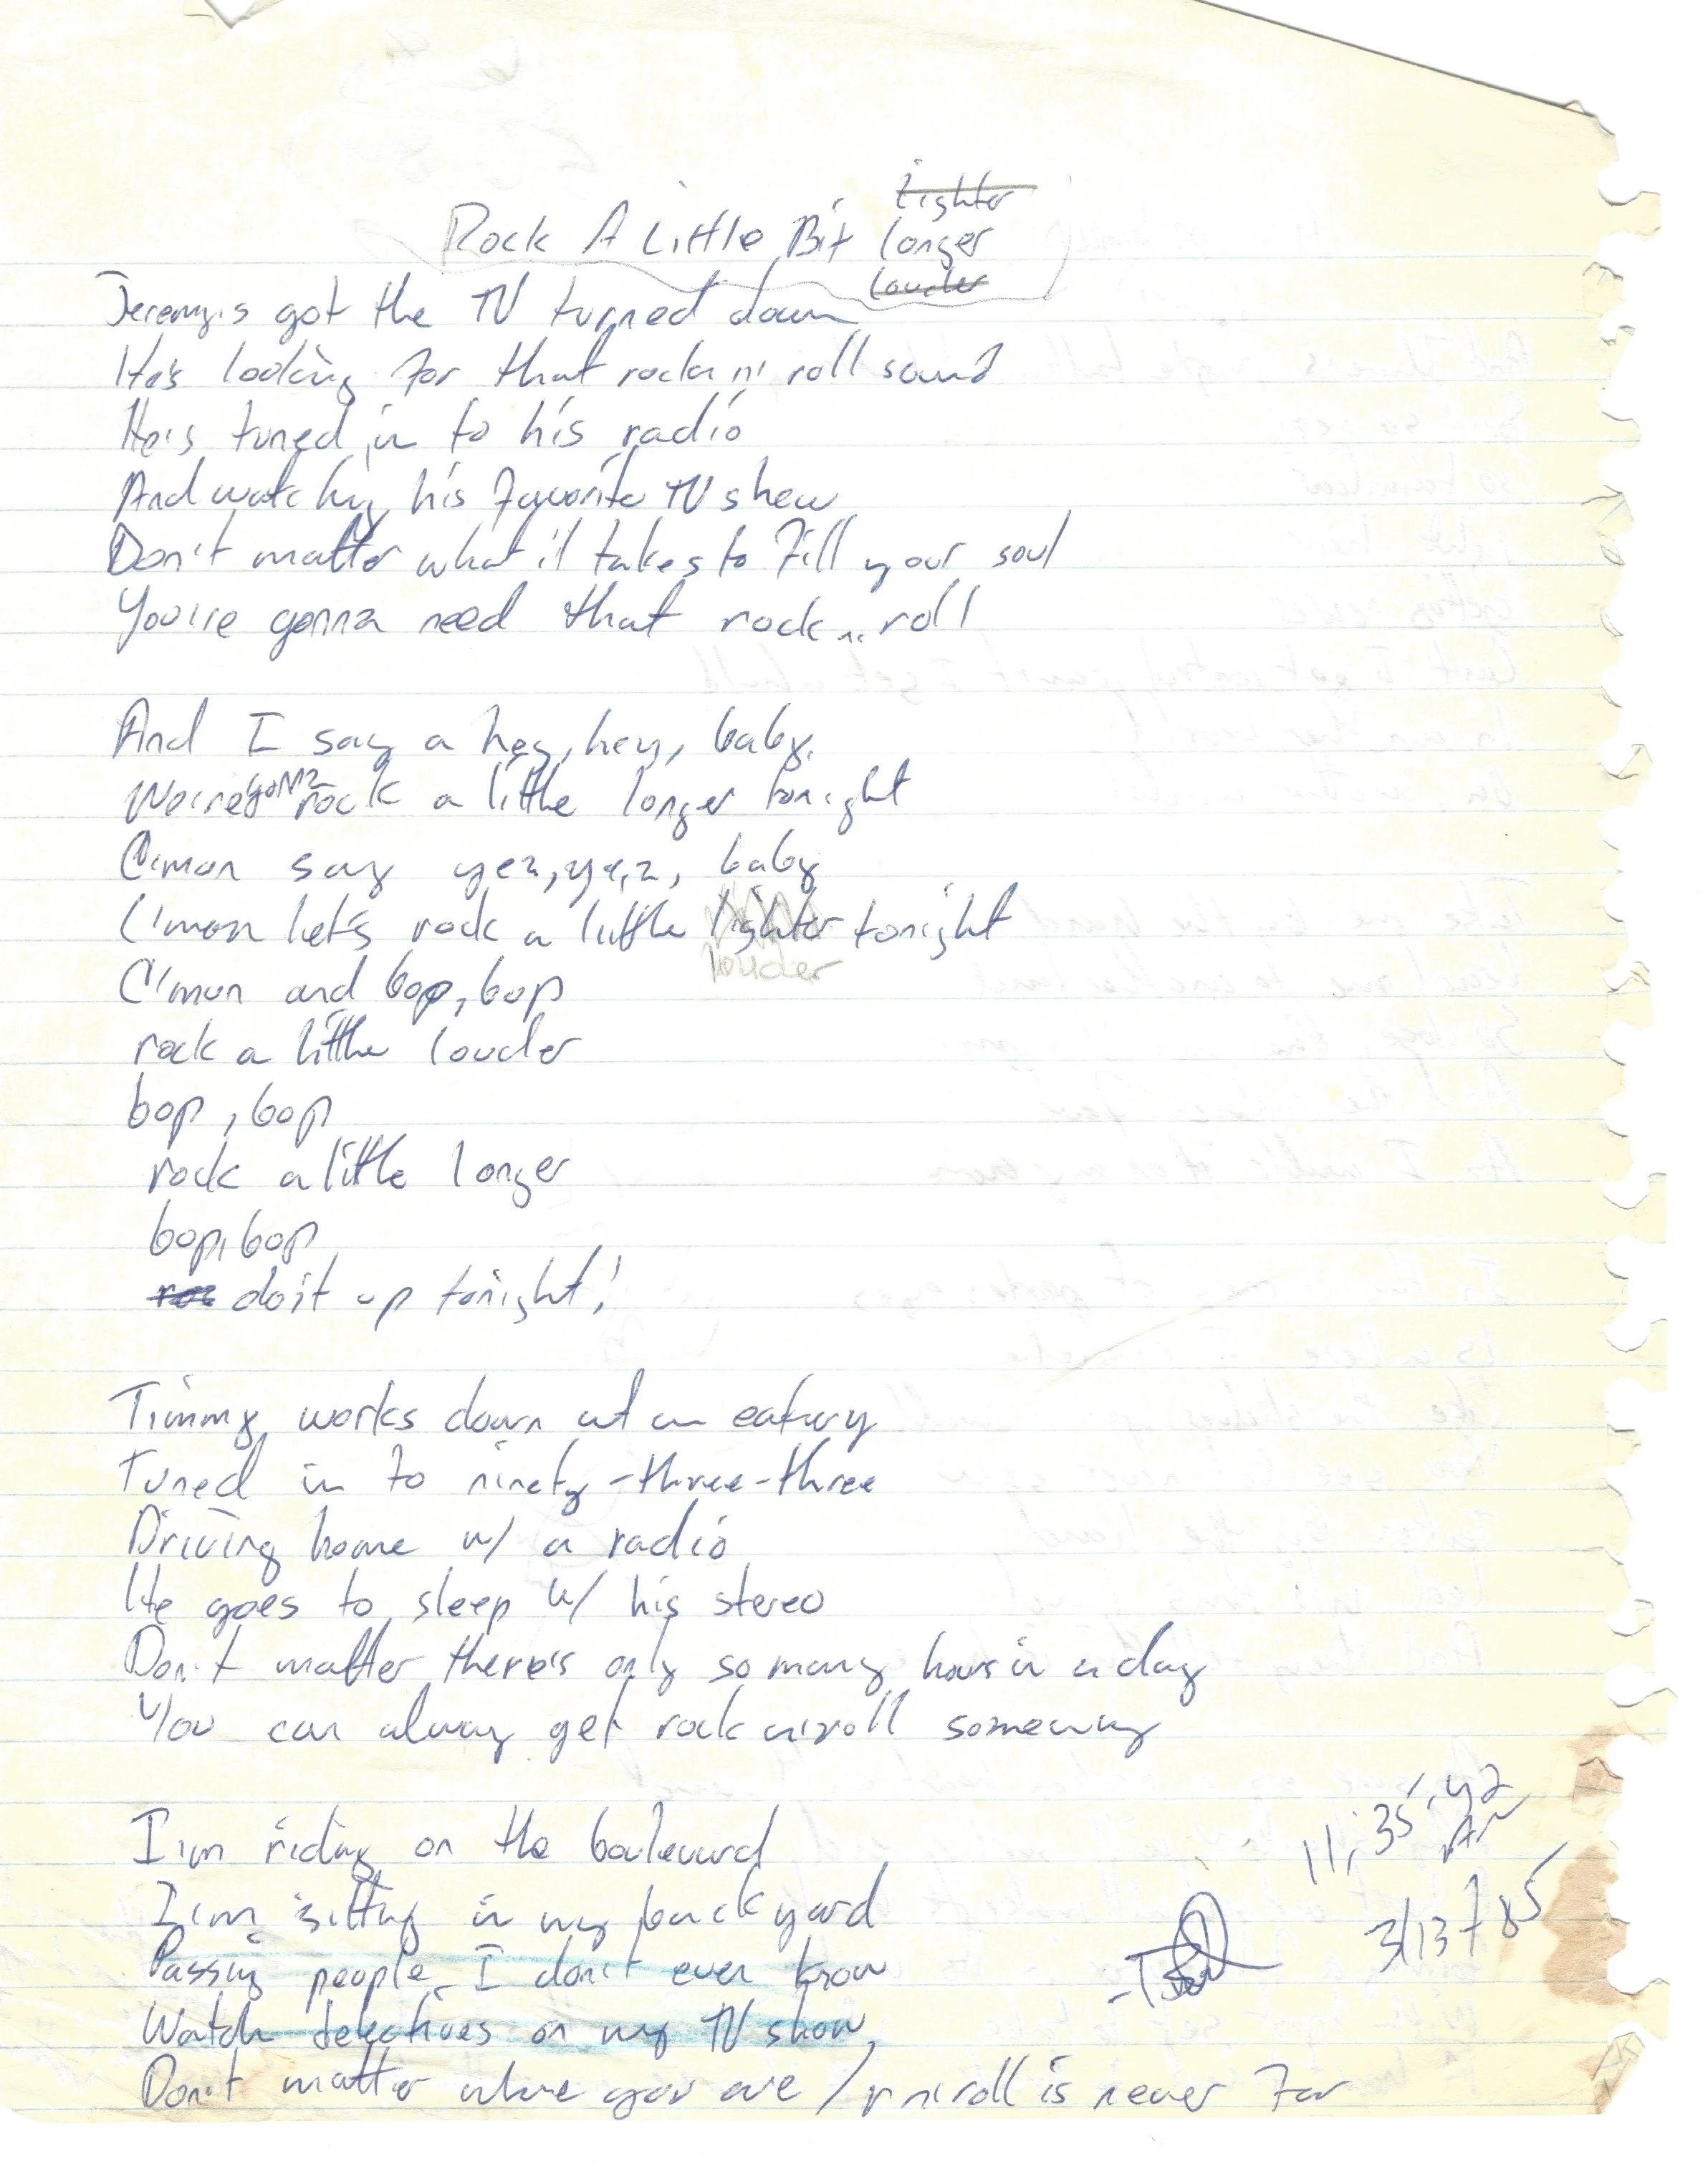 Rock A Little Bit tighter
longer
louder
Jeremy's got the TV turned down
He's looking for that rock n' roll sound
He's tuned in to his radio
And watching his favorite TV show
Don't matter what it takes to fill your soul
You're gonna need that rock n' roll
And I say a hey, hey, baby.
We're gonna rock a little longer tonight
C'mon say yea, yea, baby
C'mon let's rock a little tighter tonight
louder
C'mon and bop, bop
rock a little louder
bop, bop
rock a little longer
bop, bop
do it up tonight!
Timmy works down at an eatery
Tuned in to ninety-three-three
Driving home w/ a radio
He goes to sleep w/ his stereo
Don't matter there's only so many hours in a day
You can alway get rock n' roll someway
I'm riding on the boulevard
I'm sitting in my backyard
Passing people I don't even know
Watch detectives on my TV show
Don't matter where you are / r n' roll is never far
11:35:42
AM
3/13/85